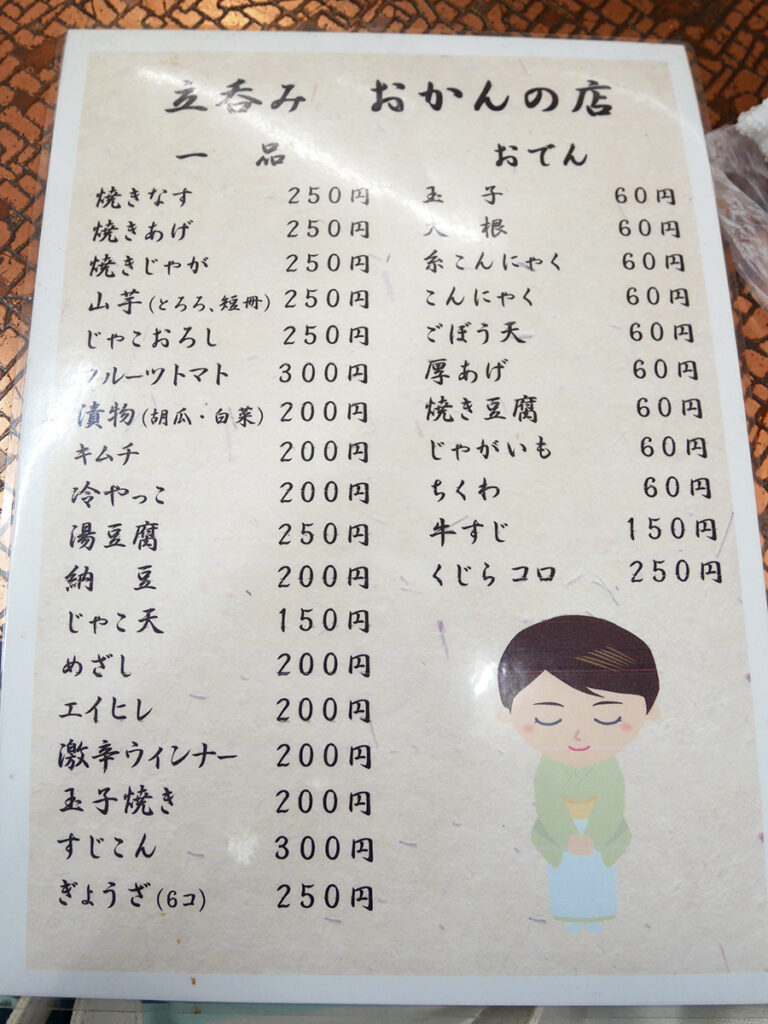 立呑み おかんの店
一 品
焼きなす 250円
焼きあげ 250円
焼きじゃが 250円
山芋(とろろ、短冊) 250円
じゃこおろし 250円
フルーツトマト 300円
漬物(胡瓜・白菜) 200円
キムチ 200円
冷やっこ 200円
湯豆腐 250円
納 豆 200円
じゃこ天 150円
めざし 200円
エイヒレ 200円
激辛ウィンナー 200円
玉子焼き 200円
すじこん 300円
ぎょうざ(6コ) 250円
おでん
玉 子 60円
大 根 60円
糸こんにゃく 60円
こんにゃく 60円
ごぼう天 60円
厚あげ 60円
焼き豆腐 60円
じゃがいも 60円
ちくわ 60円
牛すじ 150円
くじらコロ 250円